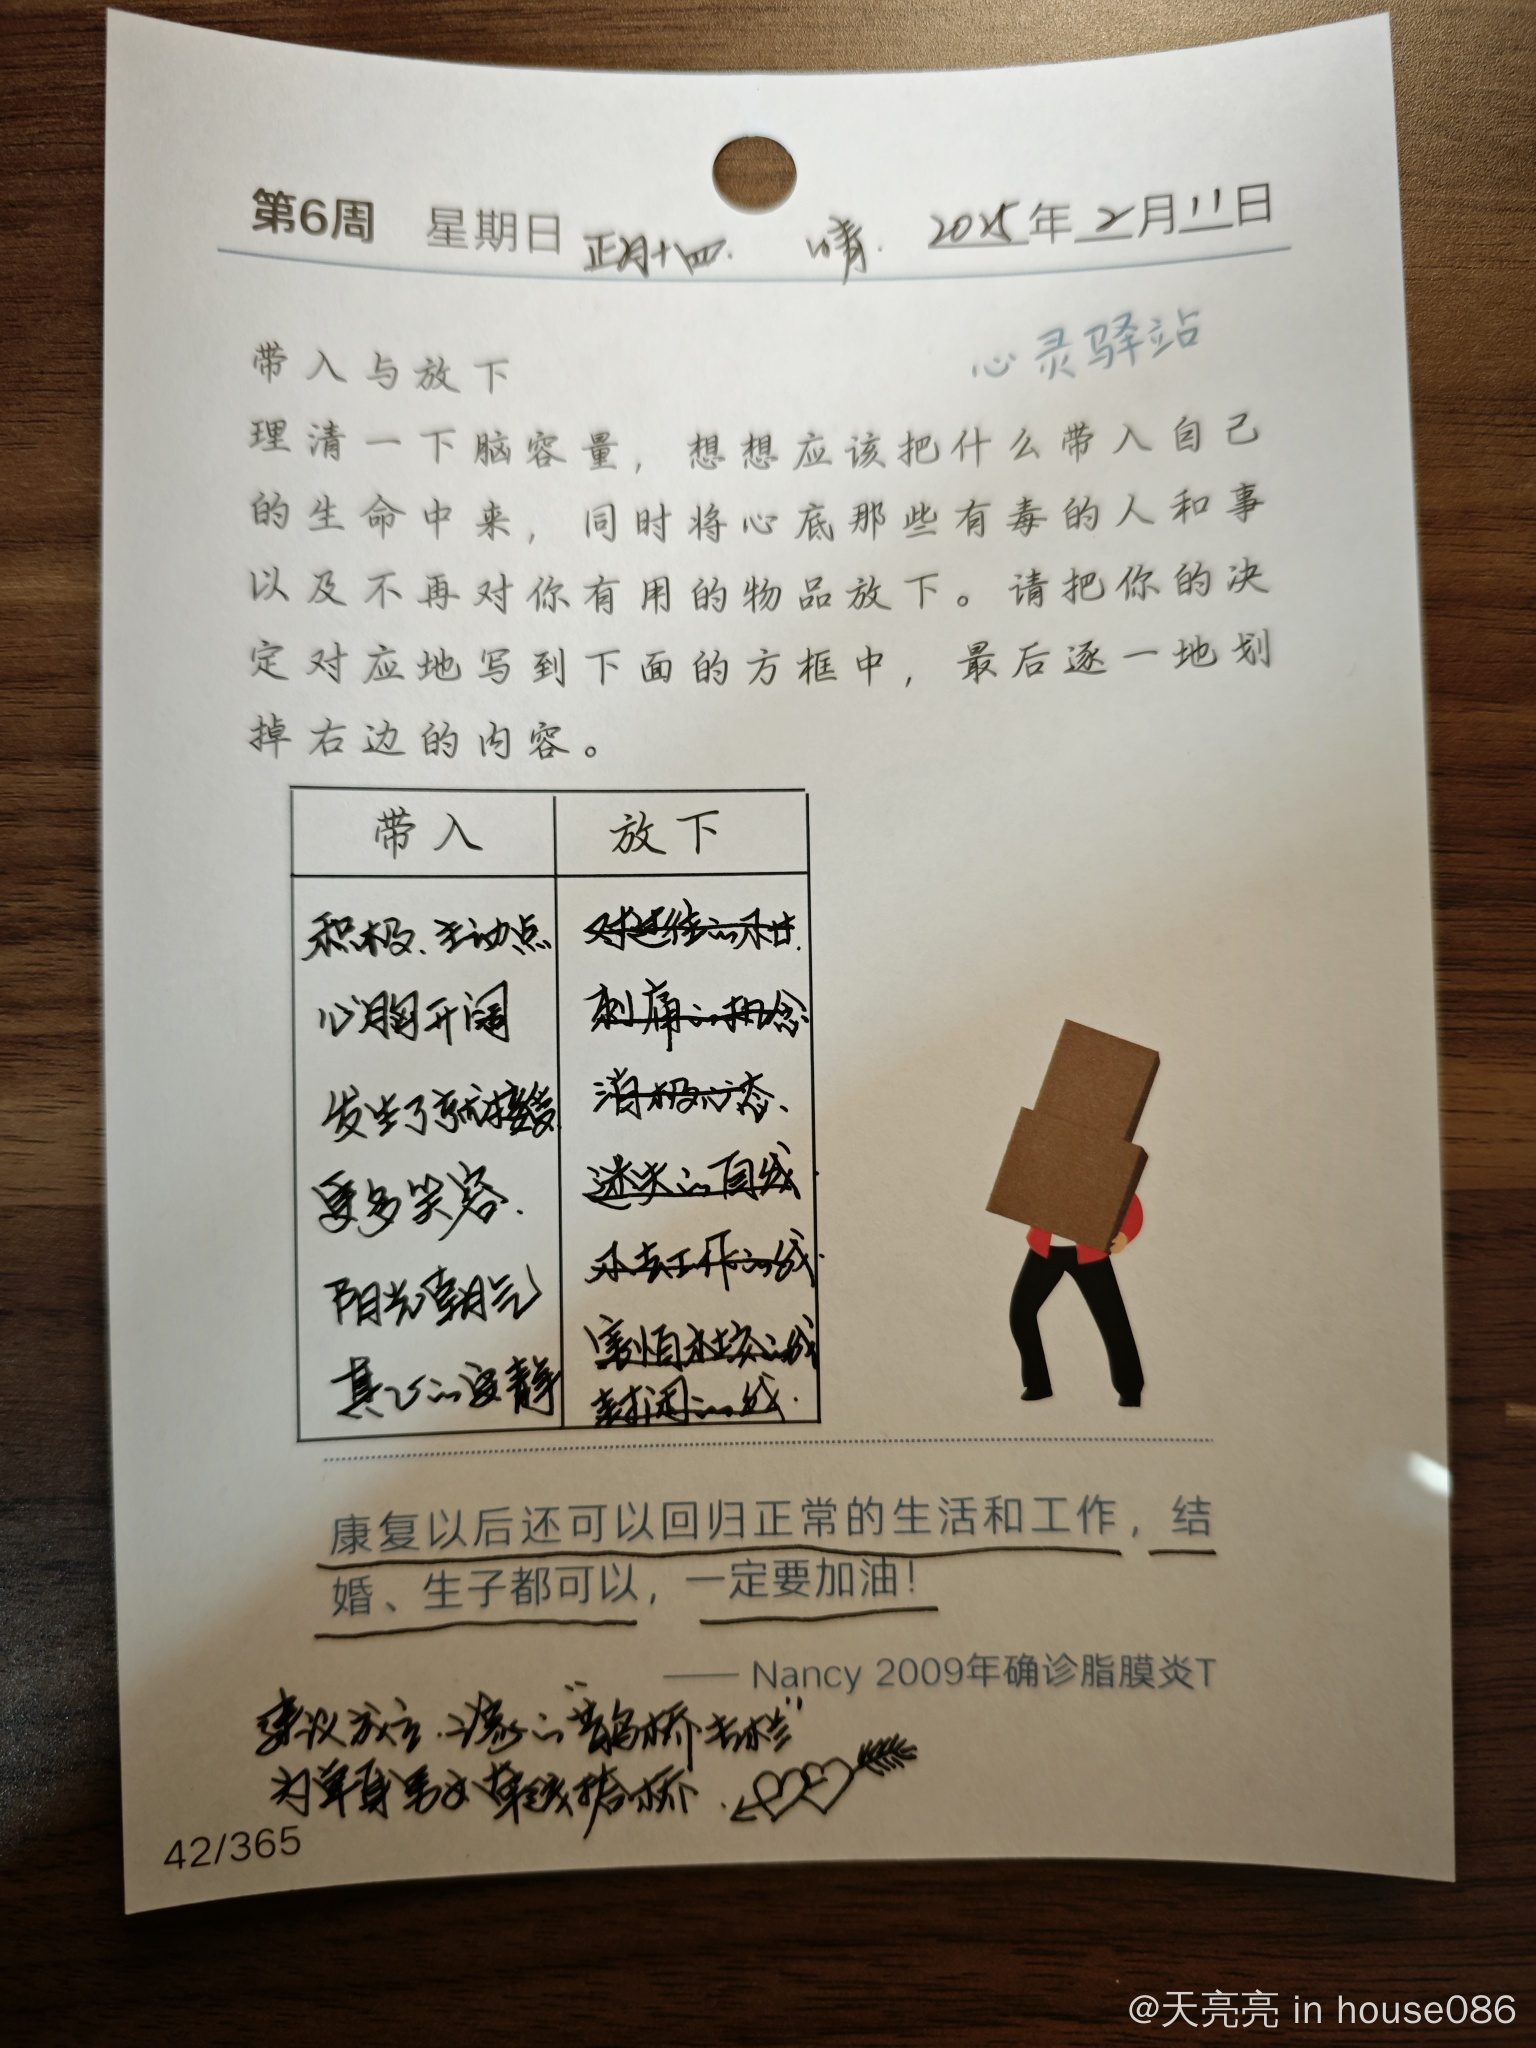 第6周 星期日 正月十四. 晴. 2025年2月11日
心灵驿站
带入与放下
理清一下脑容量，想想应该把什么带入自己
的生命中来，同时将心底那些有毒的人和事
以及不再对你有用的物品放下。请把你的决
定对应地写到下面的方框中，最后逐一地划
掉右边的内容。
带入 放下
积极、主动点 对过往的不甘.
心胸开阔 刺痛的执念
发生了就接受 消极心态、
更多笑容. 迷失的自我
阳光朝气 失去工作的我
真正的安静 害怕社交的我
封闭的我.
康复以后还可以回归正常的生活和工作，结
婚、生子都可以，一定要加油！
—— Nancy 2009年确诊脂膜炎T
为单身男女牵线搭桥.
42/365
@天亮亮 in house086